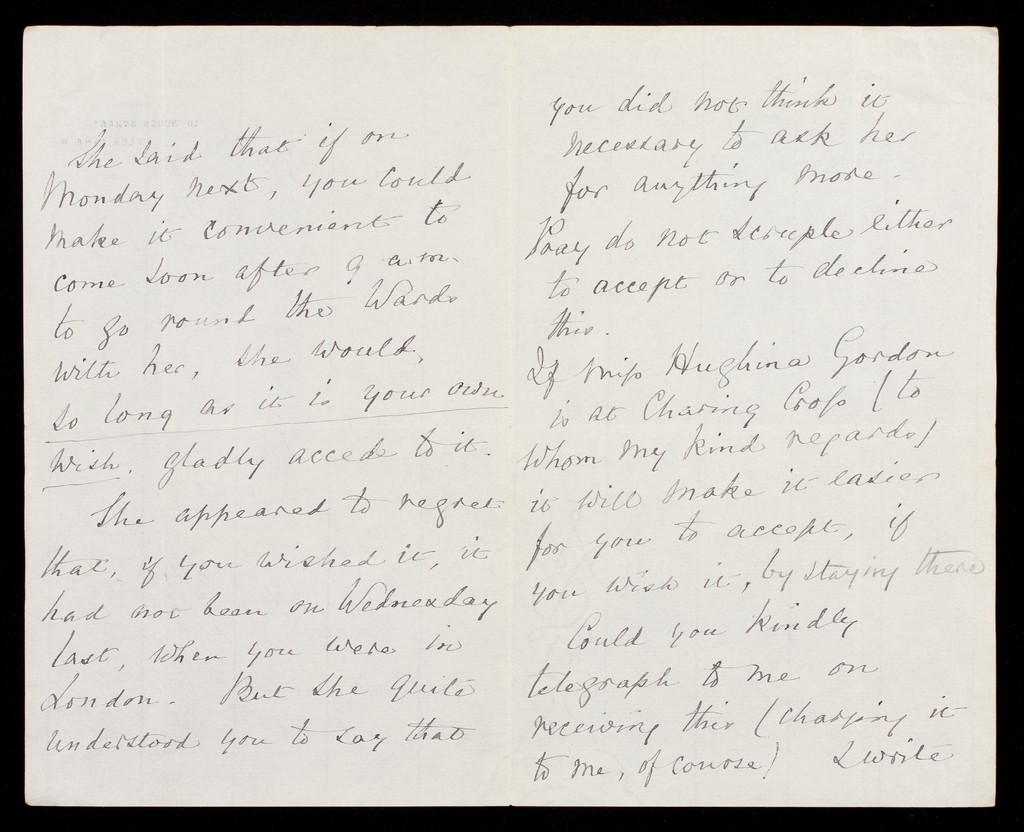 She said that if on
Monday next, you could
make it convenient to
come soon after 9 a.m.
to go round the Wards
with her, she would,
so long as it is your own
wish, gladly accede to it.
She appeared to regret
that, if you wished it, it
had not been on Wednesday
last, when you were in
London. But she quite
understood you to say that
you did not think it
necessary to ask her
for anything more.
Pray do not scruple either
to accept or to decline
this.
If Miss Hughina Gordon
is at Charing Cross (to
whom my kind regards)
it will make it easier
for you to accept, if
you wish it, by staying there
Could you kindly
telegraph to me on
receiving this (charging it
to me, of course) I write